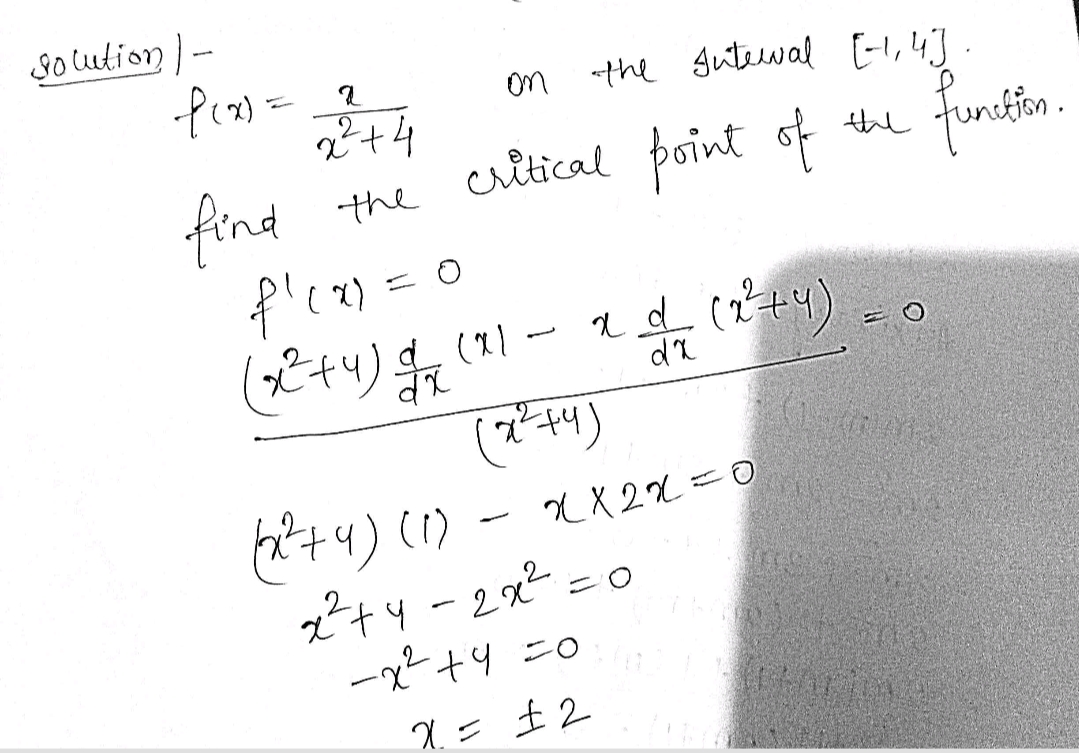 solution :-
f(x) = x/(x²+4) on the Interval [-1,4].
find the critical point of the function.
f'(x) = 0
((x²+4) d/dx (x) - x d/dx (x²+4))/(x²+4) = 0
(x²+4) (1) - x X 2x = 0
x²+4 - 2x² = 0
-x² +4 = 0
x = ±2